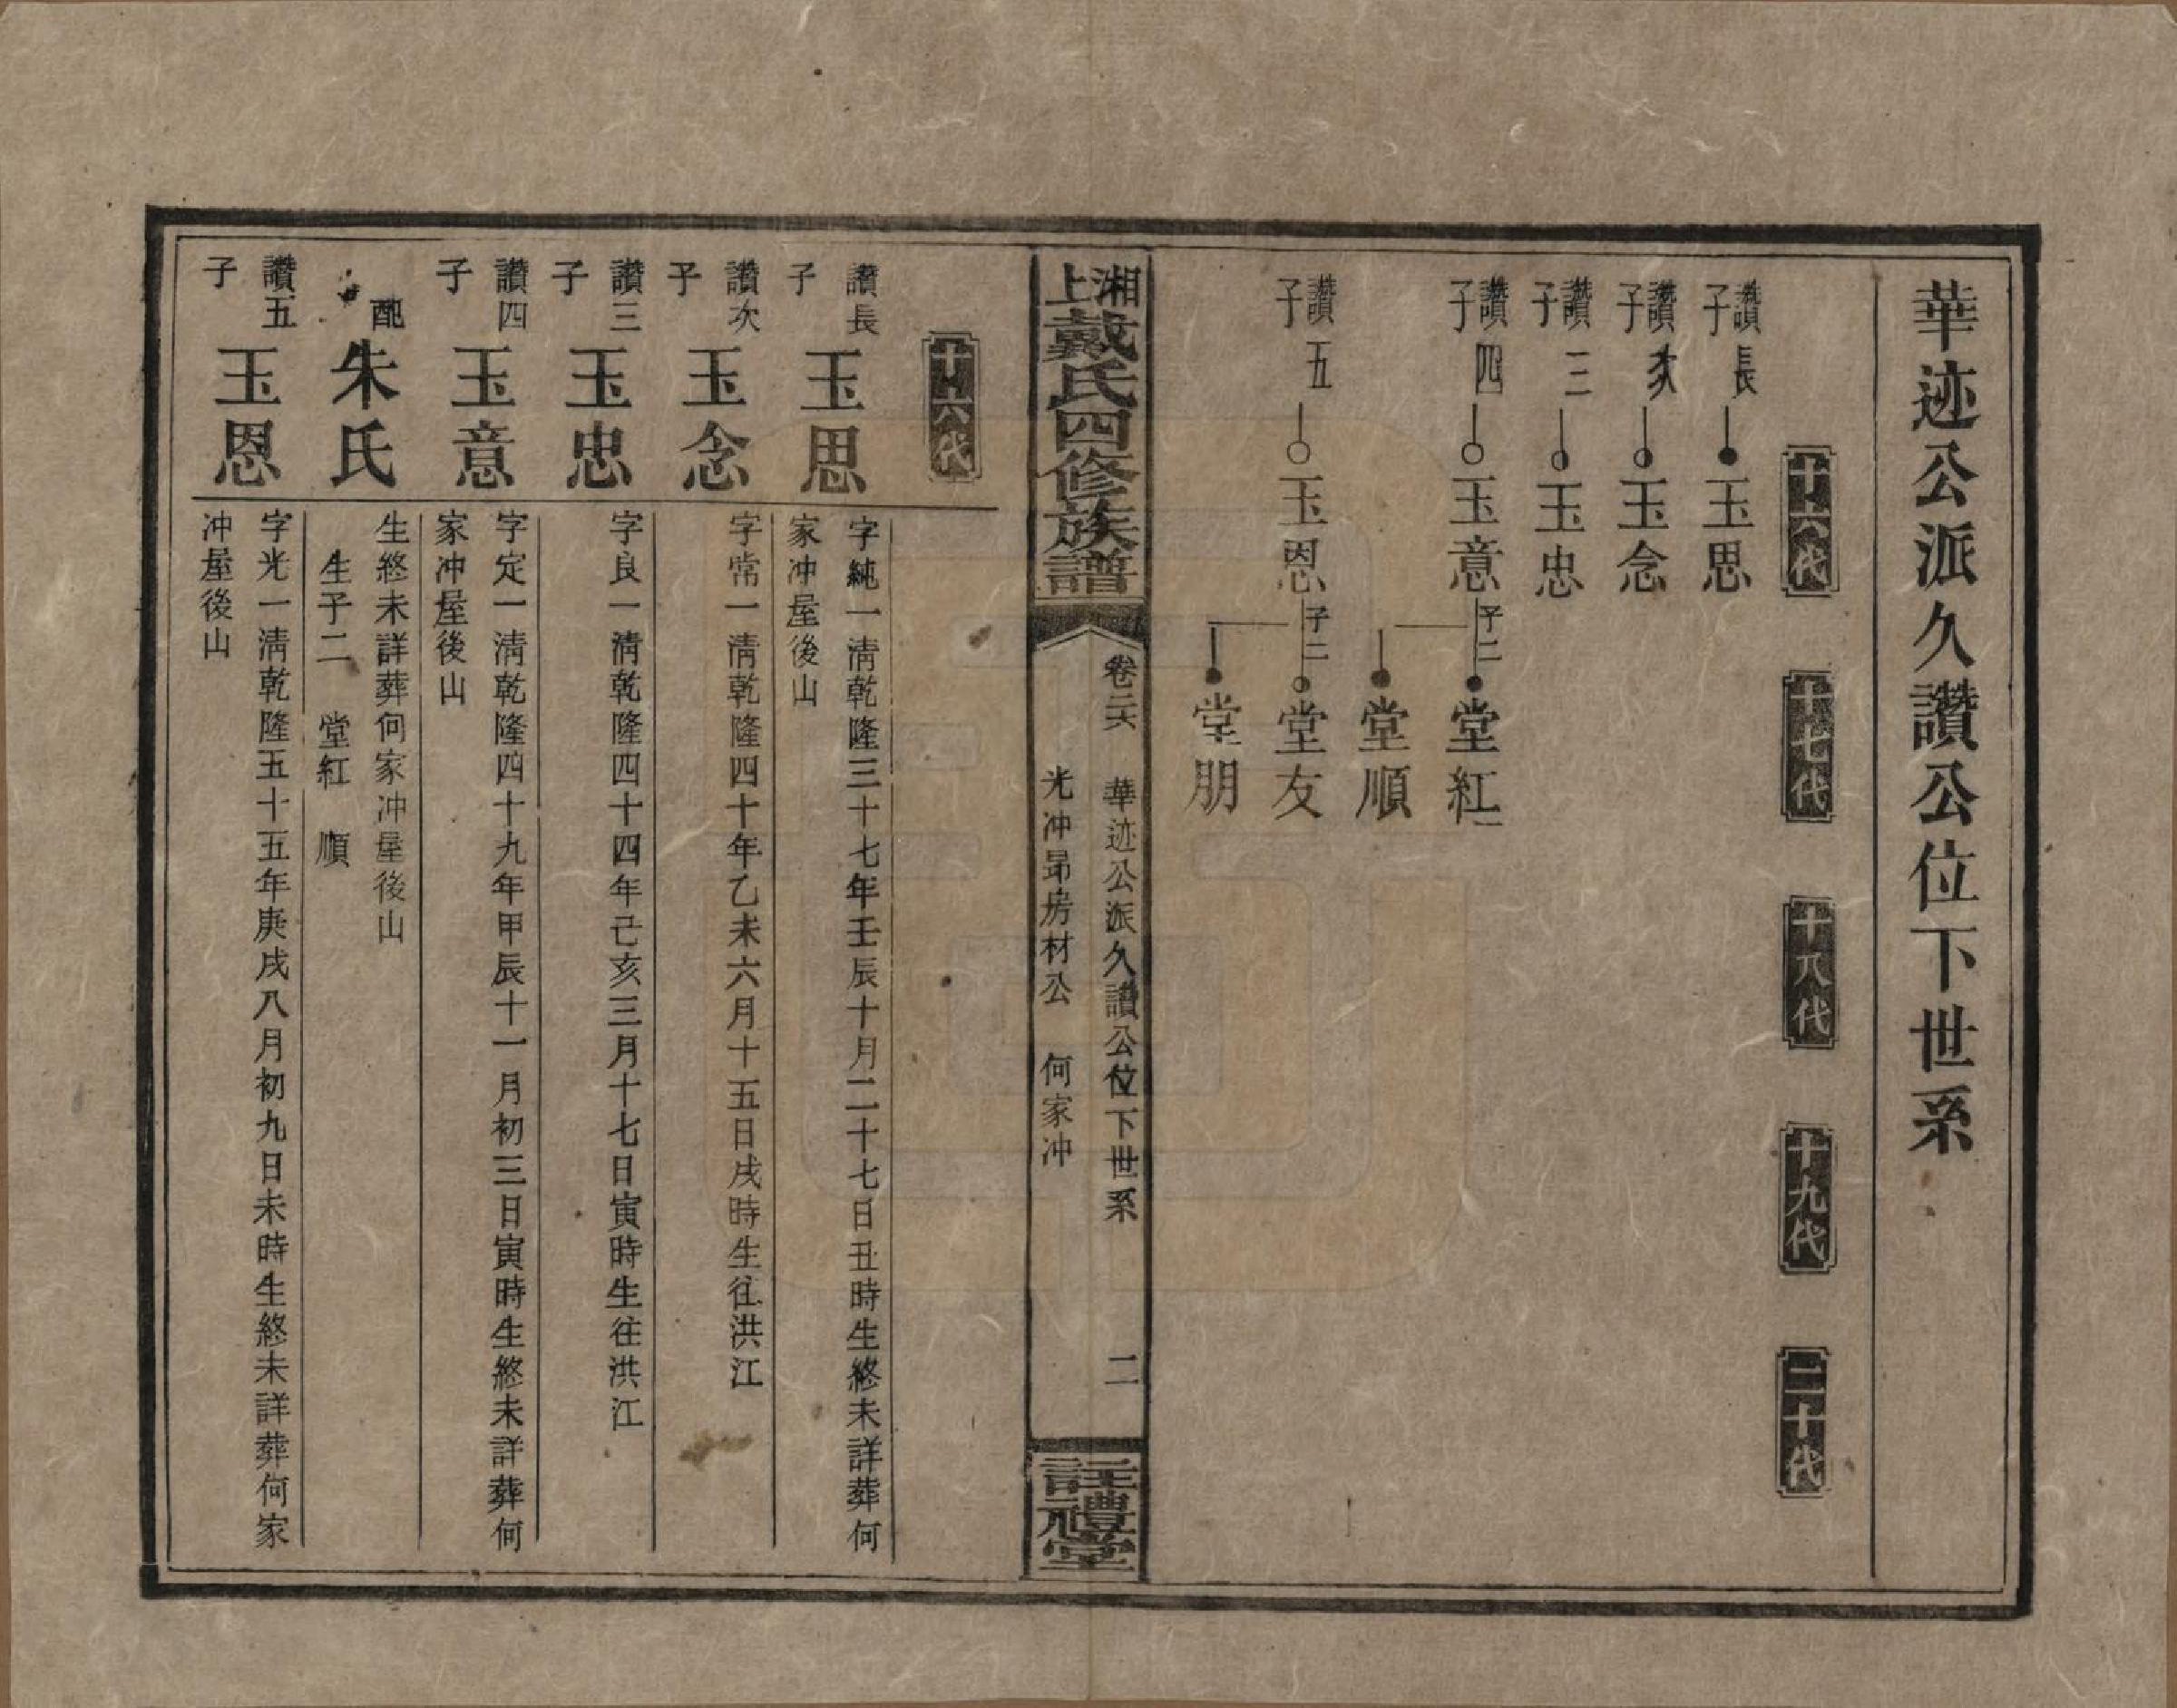 華迹公派久讚公位下世系
十六代
十七代
十八代
十九代
二十代
讚長子
玉思
讚次子
玉念
讚三子
玉忠
讚四子
玉意
子二
堂紅
堂順
讚五子
玉恩
子二
堂友
堂朋
上湘戴氏四修族譜
卷二六
華迹公派久讚公位下世系
光冲昴房材公 何家冲
二
註禮堂
十六代
讚長子
玉思
字純一清乾隆三十七年壬辰十月二十七日丑時生終未詳葬何
家冲屋後山
讚次子
玉念
字常一清乾隆四十年乙未六月十五日戌時生往洪江
讚三子
玉忠
字良一清乾隆四十四年己亥三月十七日寅時生往洪江
讚四子
玉意
字定一清乾隆四十九年甲辰十一月初三日寅時生終未詳葬何
家冲屋後山
配
朱氏
生終未詳葬何家冲屋後山
生子二 堂紅 順
讚五子
玉恩
字光一清乾隆五十五年庚戌八月初九日未時生終未詳葬何家
冲屋後山